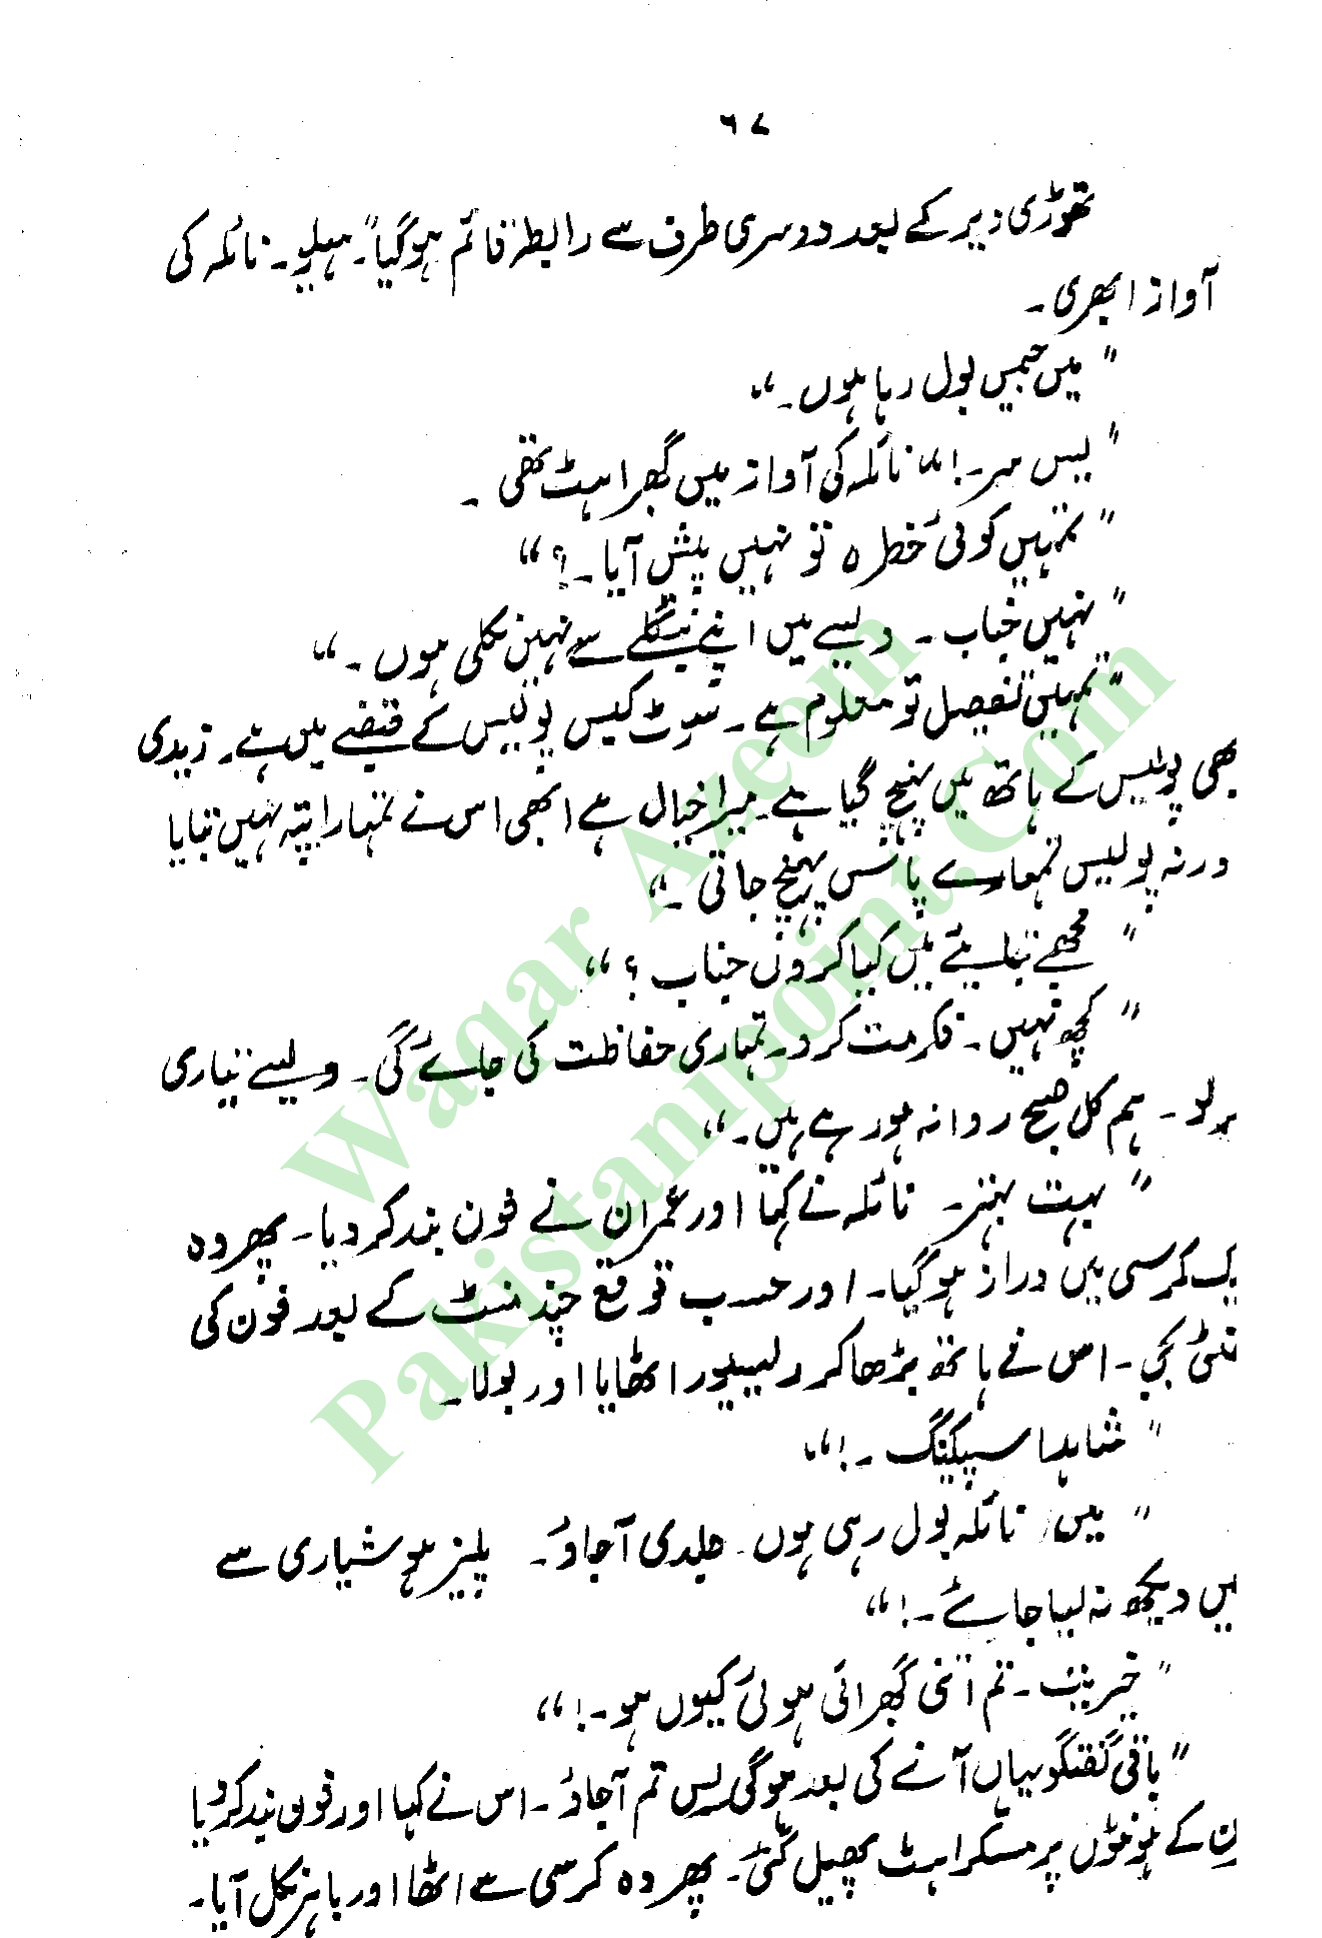 ۶۷
تھوڑی دیر کے بعد دوسری طرف سے رابطہ قائم ہو گیا"۔ ہیلو۔ نائلہ کی
آواز ابھری۔
" میں جیمس بول رہا ہوں۔"
" یس سر۔! " نائلہ کی آواز میں گھبراہٹ تھی ۔
" تمہیں کوئی خطرہ تو نہیں پیش آیا۔!؟ "
" نہیں جناب ۔ ویسے میں اپنے بنگلے سے نہیں نکلی ہوں ۔"
" تمہیں تفصیل تو معلوم ہے ۔ سوٹ کیس پولیس کے قبضے میں ہے۔ زیدی
بھی پولیس کے ہاتھ میں پہنچ گیا ہے۔ میرا خیال ہے ابھی اس نے تمہارا پتہ نہیں بتایا
ورنہ پولیس تمھارے پاس پہنچ جاتی ۔"
" مجھے بتایئے میں کیا کروں جناب ؟ "
" کچھ نہیں ۔ فکر مت کرو۔ تمہاری حفاظت کی جائے گی ۔ ویسے تیاری
کر لو ۔ ہم کل صبح روانہ ہو رہے ہیں ۔"
" بہت بہتر ۔ نائلہ نے کہا اور عمران نے فون بند کر دیا ۔ پھر وہ
یک کرسی میں دراز ہو گیا ۔ اور حسب توقع چند منٹ کے بعد فون کی
نٹی بجی ۔ اس نے ہاتھ بڑھا کر ریسیور اٹھایا اور بولا ۔
" شاہدا سپیکنگ ۔! "
" میں نائلہ بول رہی ہوں ۔ جلدی آجاؤ ۔ پلیز ہوشیاری سے
یں دیکھ نہ لیا جائے ۔! "
" خیریت ۔ تم اتنی گھبرائی ہوئی کیوں ہو ۔! "
" باقی گفتگو یہاں آنے کی بعد ہوگی بس تم آجاؤ ۔ اس نے کہا اور فون بند کر دیا
ن کے ہونٹوں پر مسکراہٹ پھیل گئی ۔ پھر وہ کرسی سے اٹھا اور باہر نکل آیا ۔
Waqar Azeem
Pakistanipoint.Com